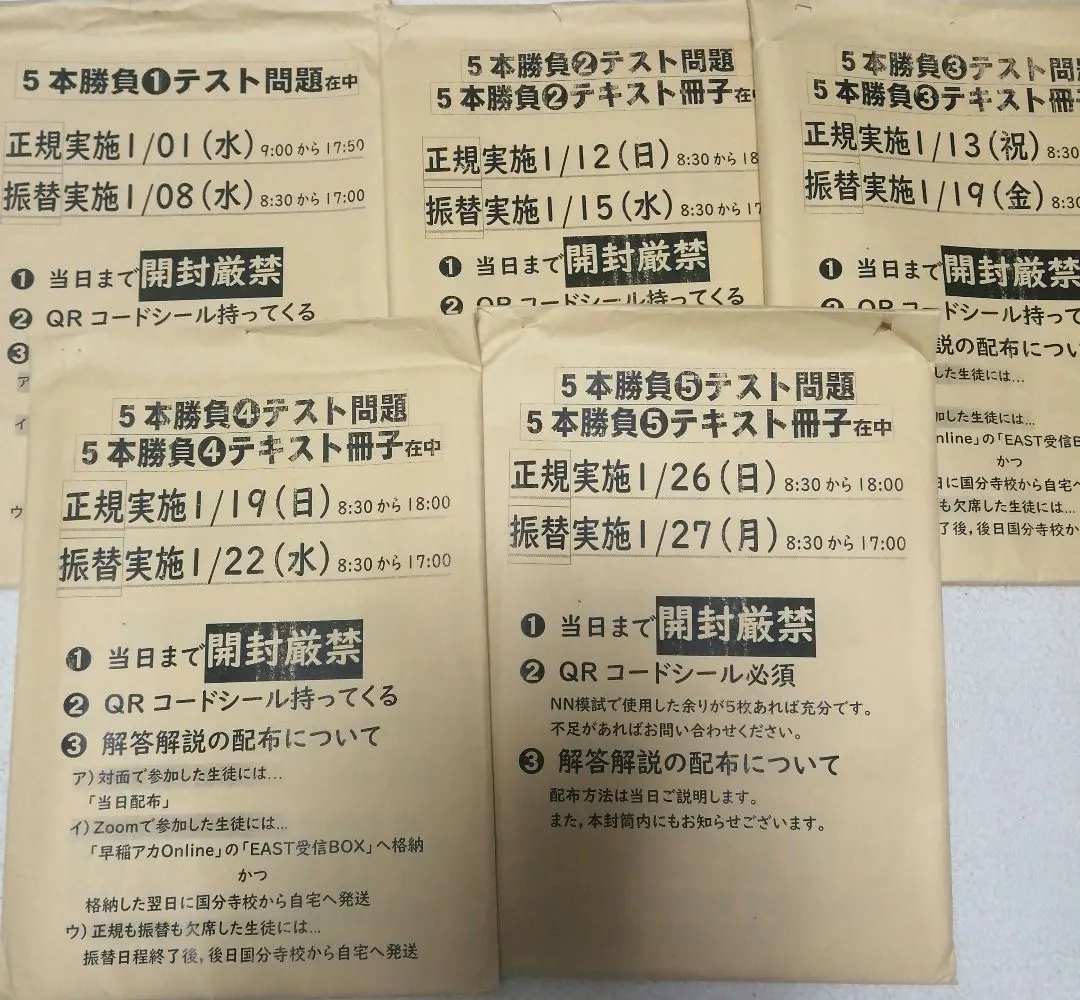 5本勝負❶テスト問題在中
正規実施1/01(水) 9:00から17:50
振替実施1/08(水) 8:30から17:00
❶ 当日まで開封厳禁
❷ QRコードシール持ってくる
❸
ア
イ
ウ
5本勝負❷テスト問題
5本勝負❷テキスト冊子在
正規実施1/12(日) 8:30から18
振替実施1/15(水) 8:30から17
❶ 当日まで開封厳禁
❷ QRコードシール持ってくる
5本勝負❸テスト問
5本勝負❸テキスト冊子
正規実施1/13(祝) 8:30
振替実施1/19(金) 8:30
❶ 当日まで開封厳禁
❷ QRコードシール持って
説の配布につい
した生徒には…
加した生徒には…
nline」の「EAST受信B
かつ
日に国分寺校から自宅へ
も欠席した生徒には…
了後,後日国分寺校か
5本勝負❹テスト問題
5本勝負❹テキスト冊子在中
正規実施1/19(日) 8:30から18:00
振替実施1/22(水) 8:30から17:00
❶ 当日まで開封厳禁
❷ QRコードシール持ってくる
❸ 解答解説の配布について
ア)対面で参加した生徒には…
「当日配布」
イ)Zoomで参加した生徒には…
「早稲アカOnline」の「EAST受信BOX」へ格納
かつ
格納した翌日に国分寺校から自宅へ発送
ウ)正規も振替も欠席した生徒には…
振替日程終了後,後日国分寺校から自宅へ発送
5本勝負❺テスト問題
5本勝負❺テキスト冊子在中
正規実施1/26(日) 8:30から18:00
振替実施1/27(月) 8:30から17:00
❶ 当日まで開封厳禁
❷ QRコードシール必須
NN模試で使用した余りが5枚あれば充分です。
不足があればお問い合わせください。
❸ 解答解説の配布について
配布方法は当日ご説明します。
また,本封筒内にもお知らせございます。